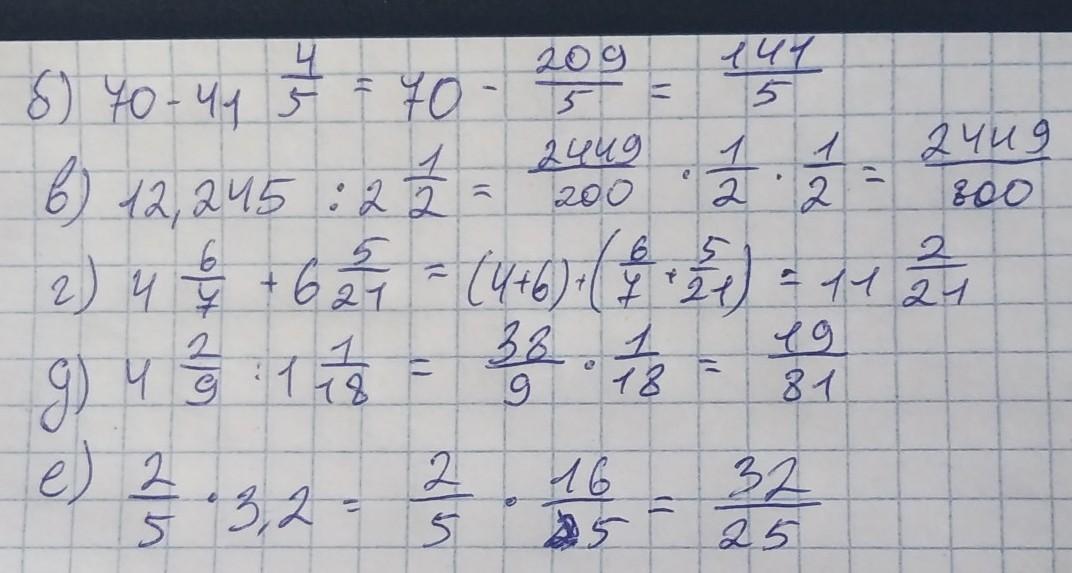 б) 70 - 41 4/5 = 70 - 209/5 = 141/5
в) 12,245 : 2 1/2 = 2449/200 · 1/2 · 1/2 = 2449/800
г) 4 6/7 + 6 5/21 = (4+6)+(6/7+5/21) = 11 2/21
д) 4 2/9 : 1 1/18 = 38/9 · 1/18 = 19/81
е) 2/5 · 3,2 = 2/5 · 16/5 = 32/25